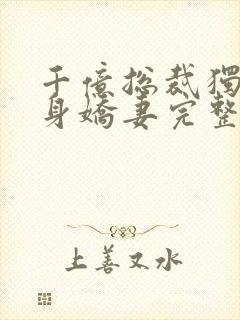 千億總裁獨
身嬌妻完整
上善又水